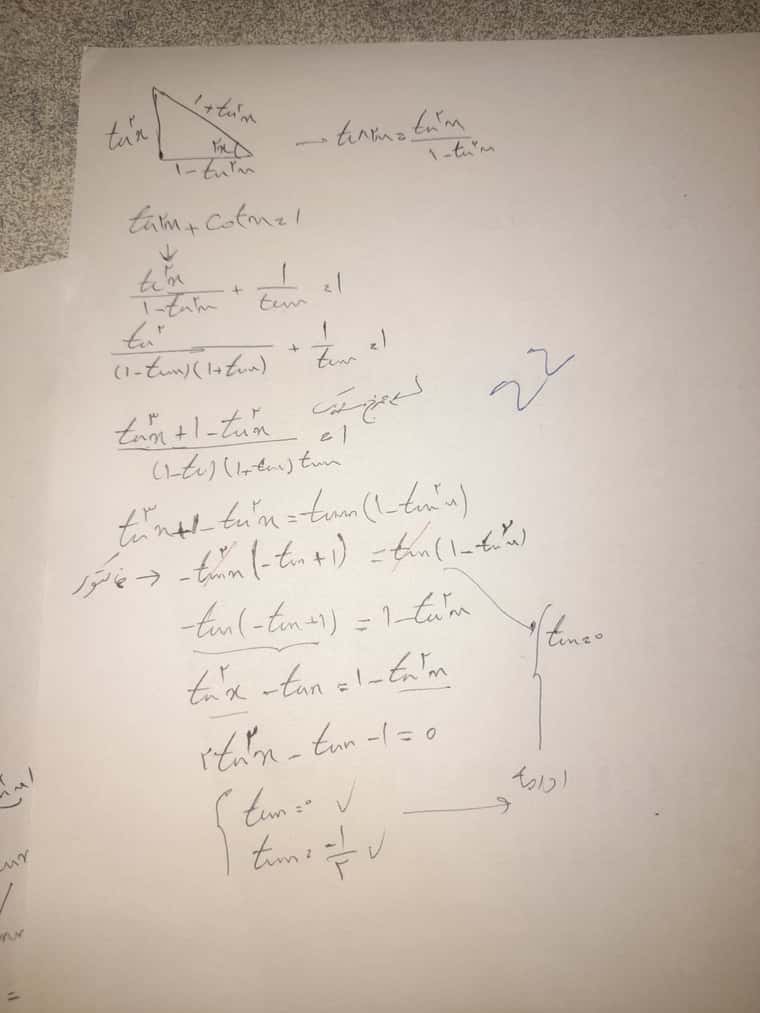 tan²x
1+tan²x
2x
1-tan²x
→ tan2x = tan²x / 1-tan²x
tan2x + cotx = 1
↓
tan²x / 1-tan²x + 1 / tanx = 1
tan² / (1-tanx)(1+tanx) + 1 / tanx = 1
tan³x + 1 - tan²x / (1-tan)(1+tan) tanx = 1
tan³x + 1 - tan²x = tanx(1-tan²x)
فاکتور → -tan²x(-tan+1) = tan(1-tan²x)
-tan(-tan+1) = 1-tan²x
tan=0
tan²x - tan = 1-tan²x
۲tan²x - tan - 1 = 0
ادامه
tan=0 ✓
tan = -1/۲ ✓